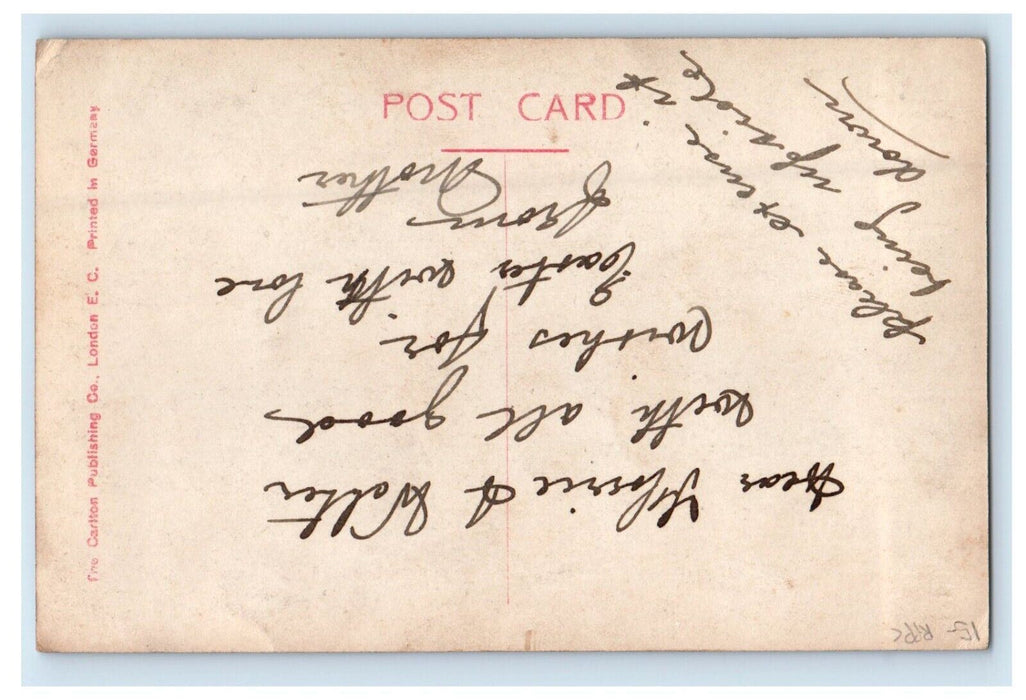 POST CARD
The Carlton Publishing Co., London E. C. Printed in Germany
Dear & Walter
with all good
wishes for
Easter with love
from
Mother
please excuse it
being upside
down
15- RPPC